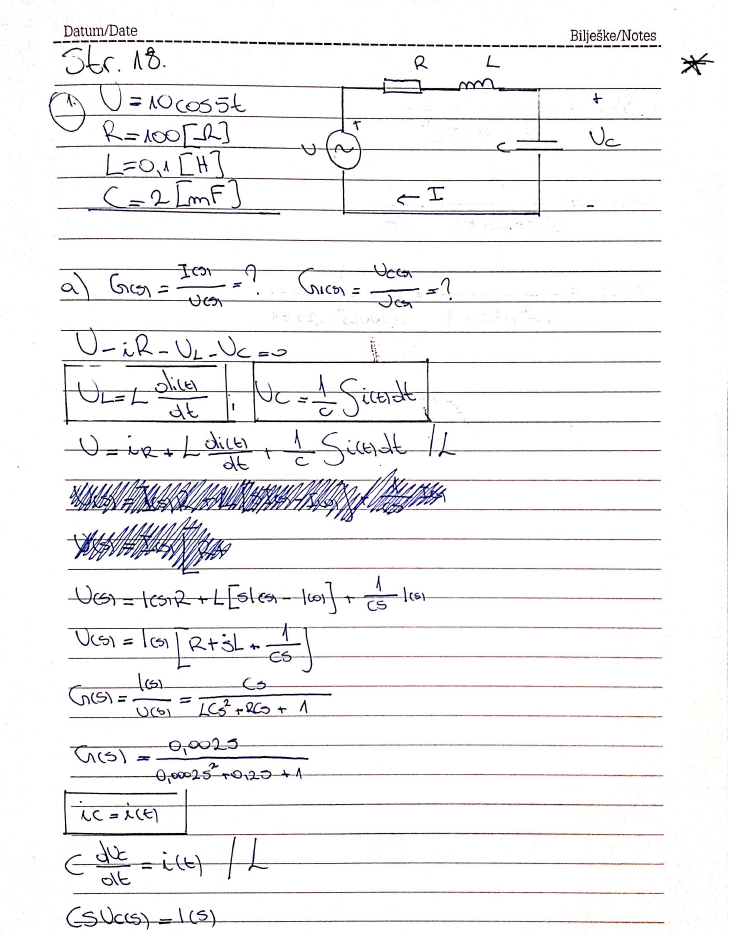 Datum/Date Bilješke/Notes
Str. 18.
R L
1. U = 10cos5t
R = 100 [Ω]
L = 0,1 [H]
C = 2 [mF]
U + C + Uc -
← I
a) G(s) = I(s)/U(s) = ? G1(s) = Uc(s)/U(s) = ?
U - iR - UL - Uc = 0
UL = L di(t)/dt ; Uc = 1/C ∫i(t)dt
U = iR + L di(t)/dt + 1/C ∫i(t)dt /L
U(s) = I(s)R + L[sI(s) - I(0)] + 1/Cs I(s)
U(s) = I(s) [R + sL + 1/Cs]
G(s) = I(s)/U(s) = Cs/LCs² + RCs + 1
G(s) = 0,002s/0,0002s² + 0,2s + 1
ic = i(t)
C dUc/dt = i(t) /L
CsUc(s) = I(s)